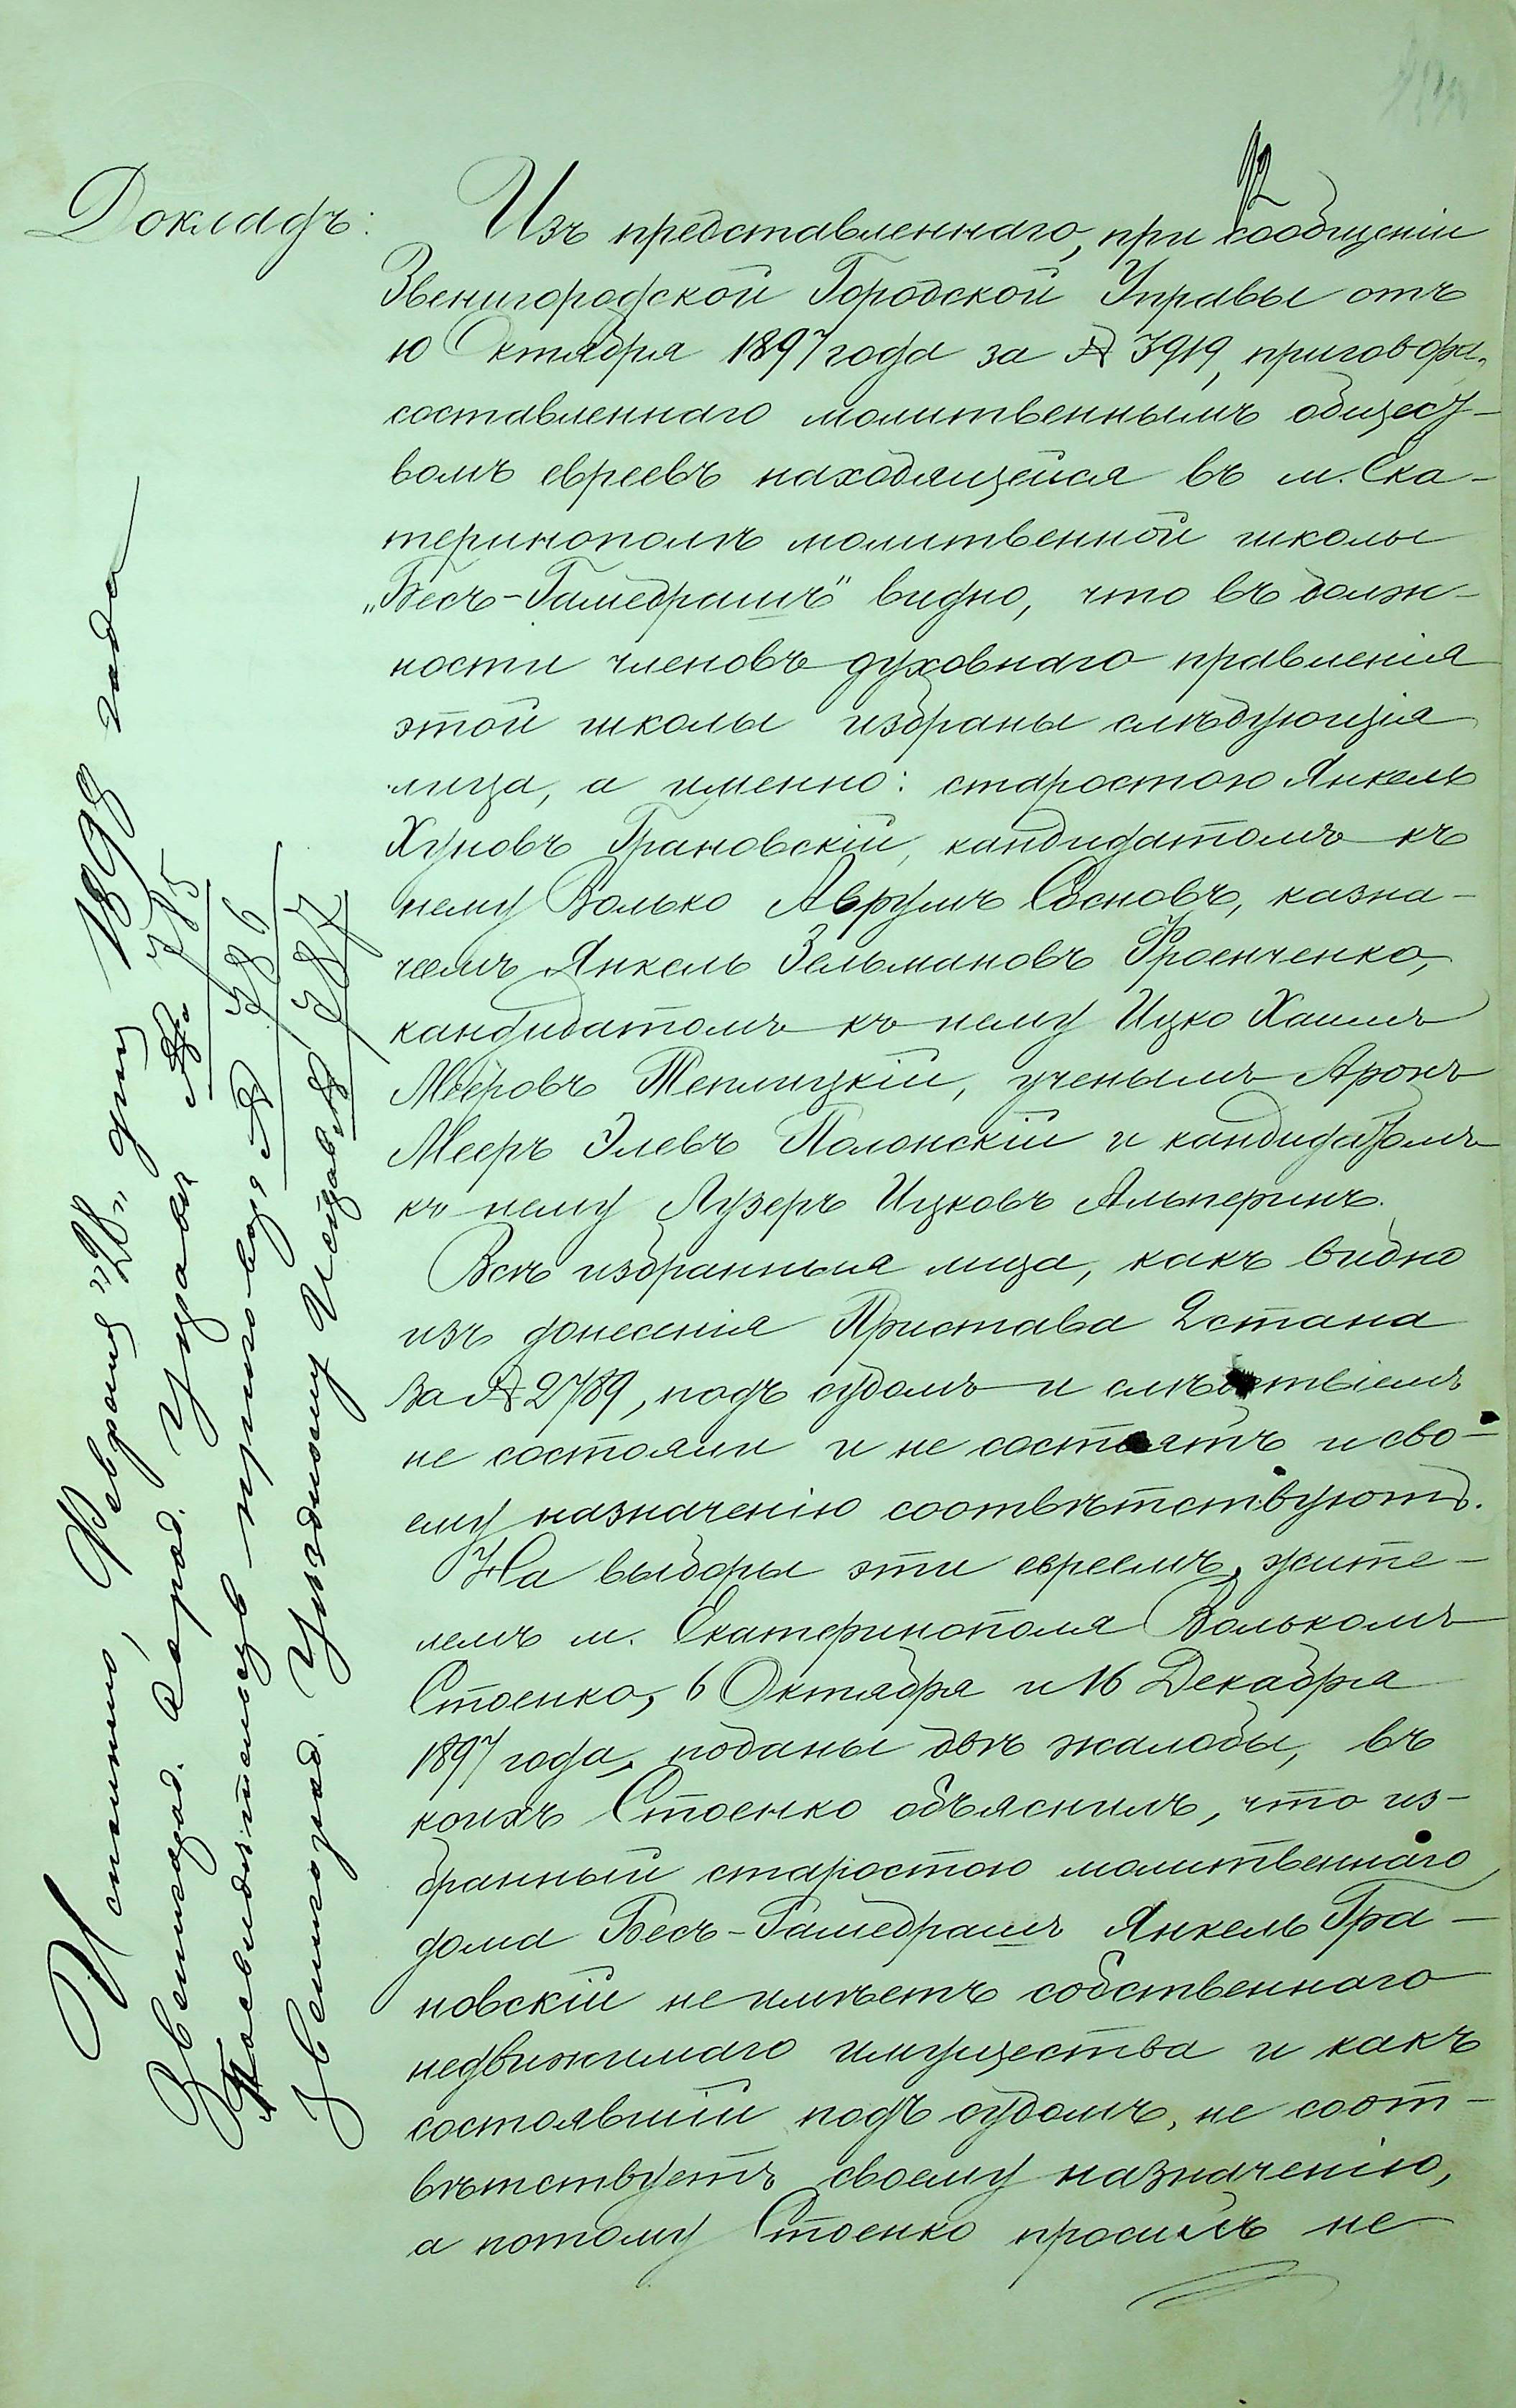 Докладъ:
Изъ представленнаго, при сообщеніи
Звенигородской Городской Управы отъ
10 Октября 1897 года за № 3919, приговора,
составленнаго молитвеннымъ общест-
вомъ евреевъ находящейся въ м. Ека-
теринополѣ молитвенной школы
„Бесъ-Гамедрашъ" видно, что въ долж-
ности членовъ духовнаго правленія
этой школы избраны слѣдующія
лица, а именно: старостою Янкель
Хуновъ Грановскій, кандидатомъ къ
нему Волько Аврумъ Сосновъ, казна-
чеемъ Янкель Зельмановъ Фроенченко,
кандидатомъ къ нему Ицко Хаимъ
Мееровъ Теплицкій, ученымъ Аронъ
Мееръ Элевъ Полонскій и кандидатомъ
къ нему Лузеръ Ицковъ Альперинъ.
Всѣ избранныя лица, какъ видно
изъ донесенія Пристава 2 стана
за № 2789, подъ судомъ и слѣдствіемъ
не состояли и не состоятъ и сво-
ему назначенію соотвѣтствуютъ.
На выборы эти евреемъ, жите-
лемъ м. Екатеринополя Волькомъ
Стоенко, 6 Октября и 16 Декабря
1897 года, поданы двѣ жалобы, въ
коихъ Стоенко объяснилъ, что из-
бранный старостою молитвеннаго
дома Бесъ-Гамедрашъ Янкель Гра-
новскій не имѣетъ собственнаго
недвижимаго имущества и какъ
состоявшій подъ судомъ, не соот-
вѣтствуетъ своему назначенію,
а потому Стоенко проситъ не
Исполнено, Февраля „28" дня 1898 года
Звенигород. Город. Управѣ № 385
№ 386
Звенигород. Уѣздному Исправ. № 387